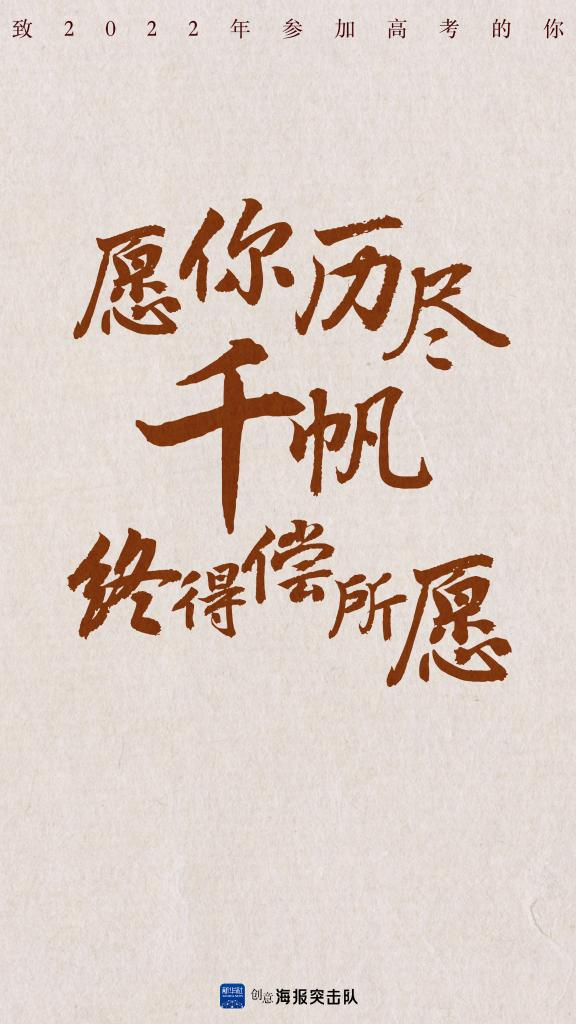 致2022年参加高考的你
愿你历尽
千帆
终得偿所愿
新华社
创意海报突击队